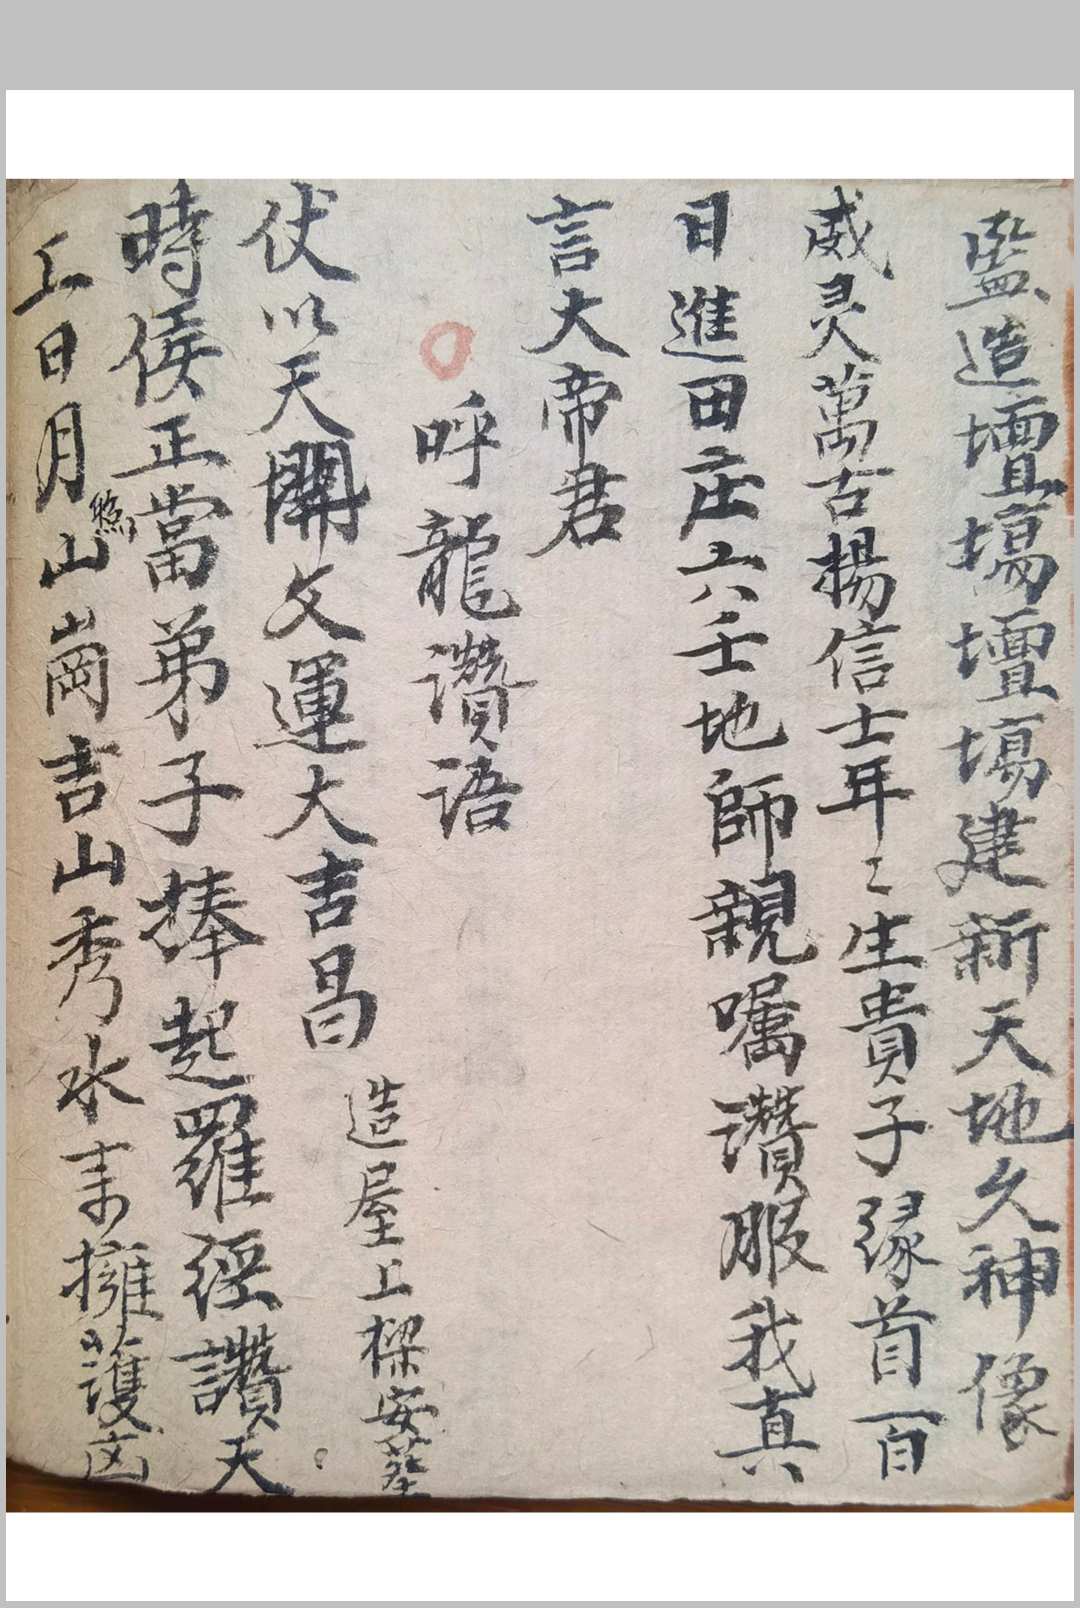 監造壇塲壇塲建新天地久神像
威灵萬古揚信士年〻生貴子缘首百
日進田庄六壬地師親嘱讚服我真
言大帝君
呼龍讚语
伏以天開文運大吉昌
造屋上樑安葬
時候正當弟子捧起羅經讚天
上日月照山崗吉山秀水来擁護